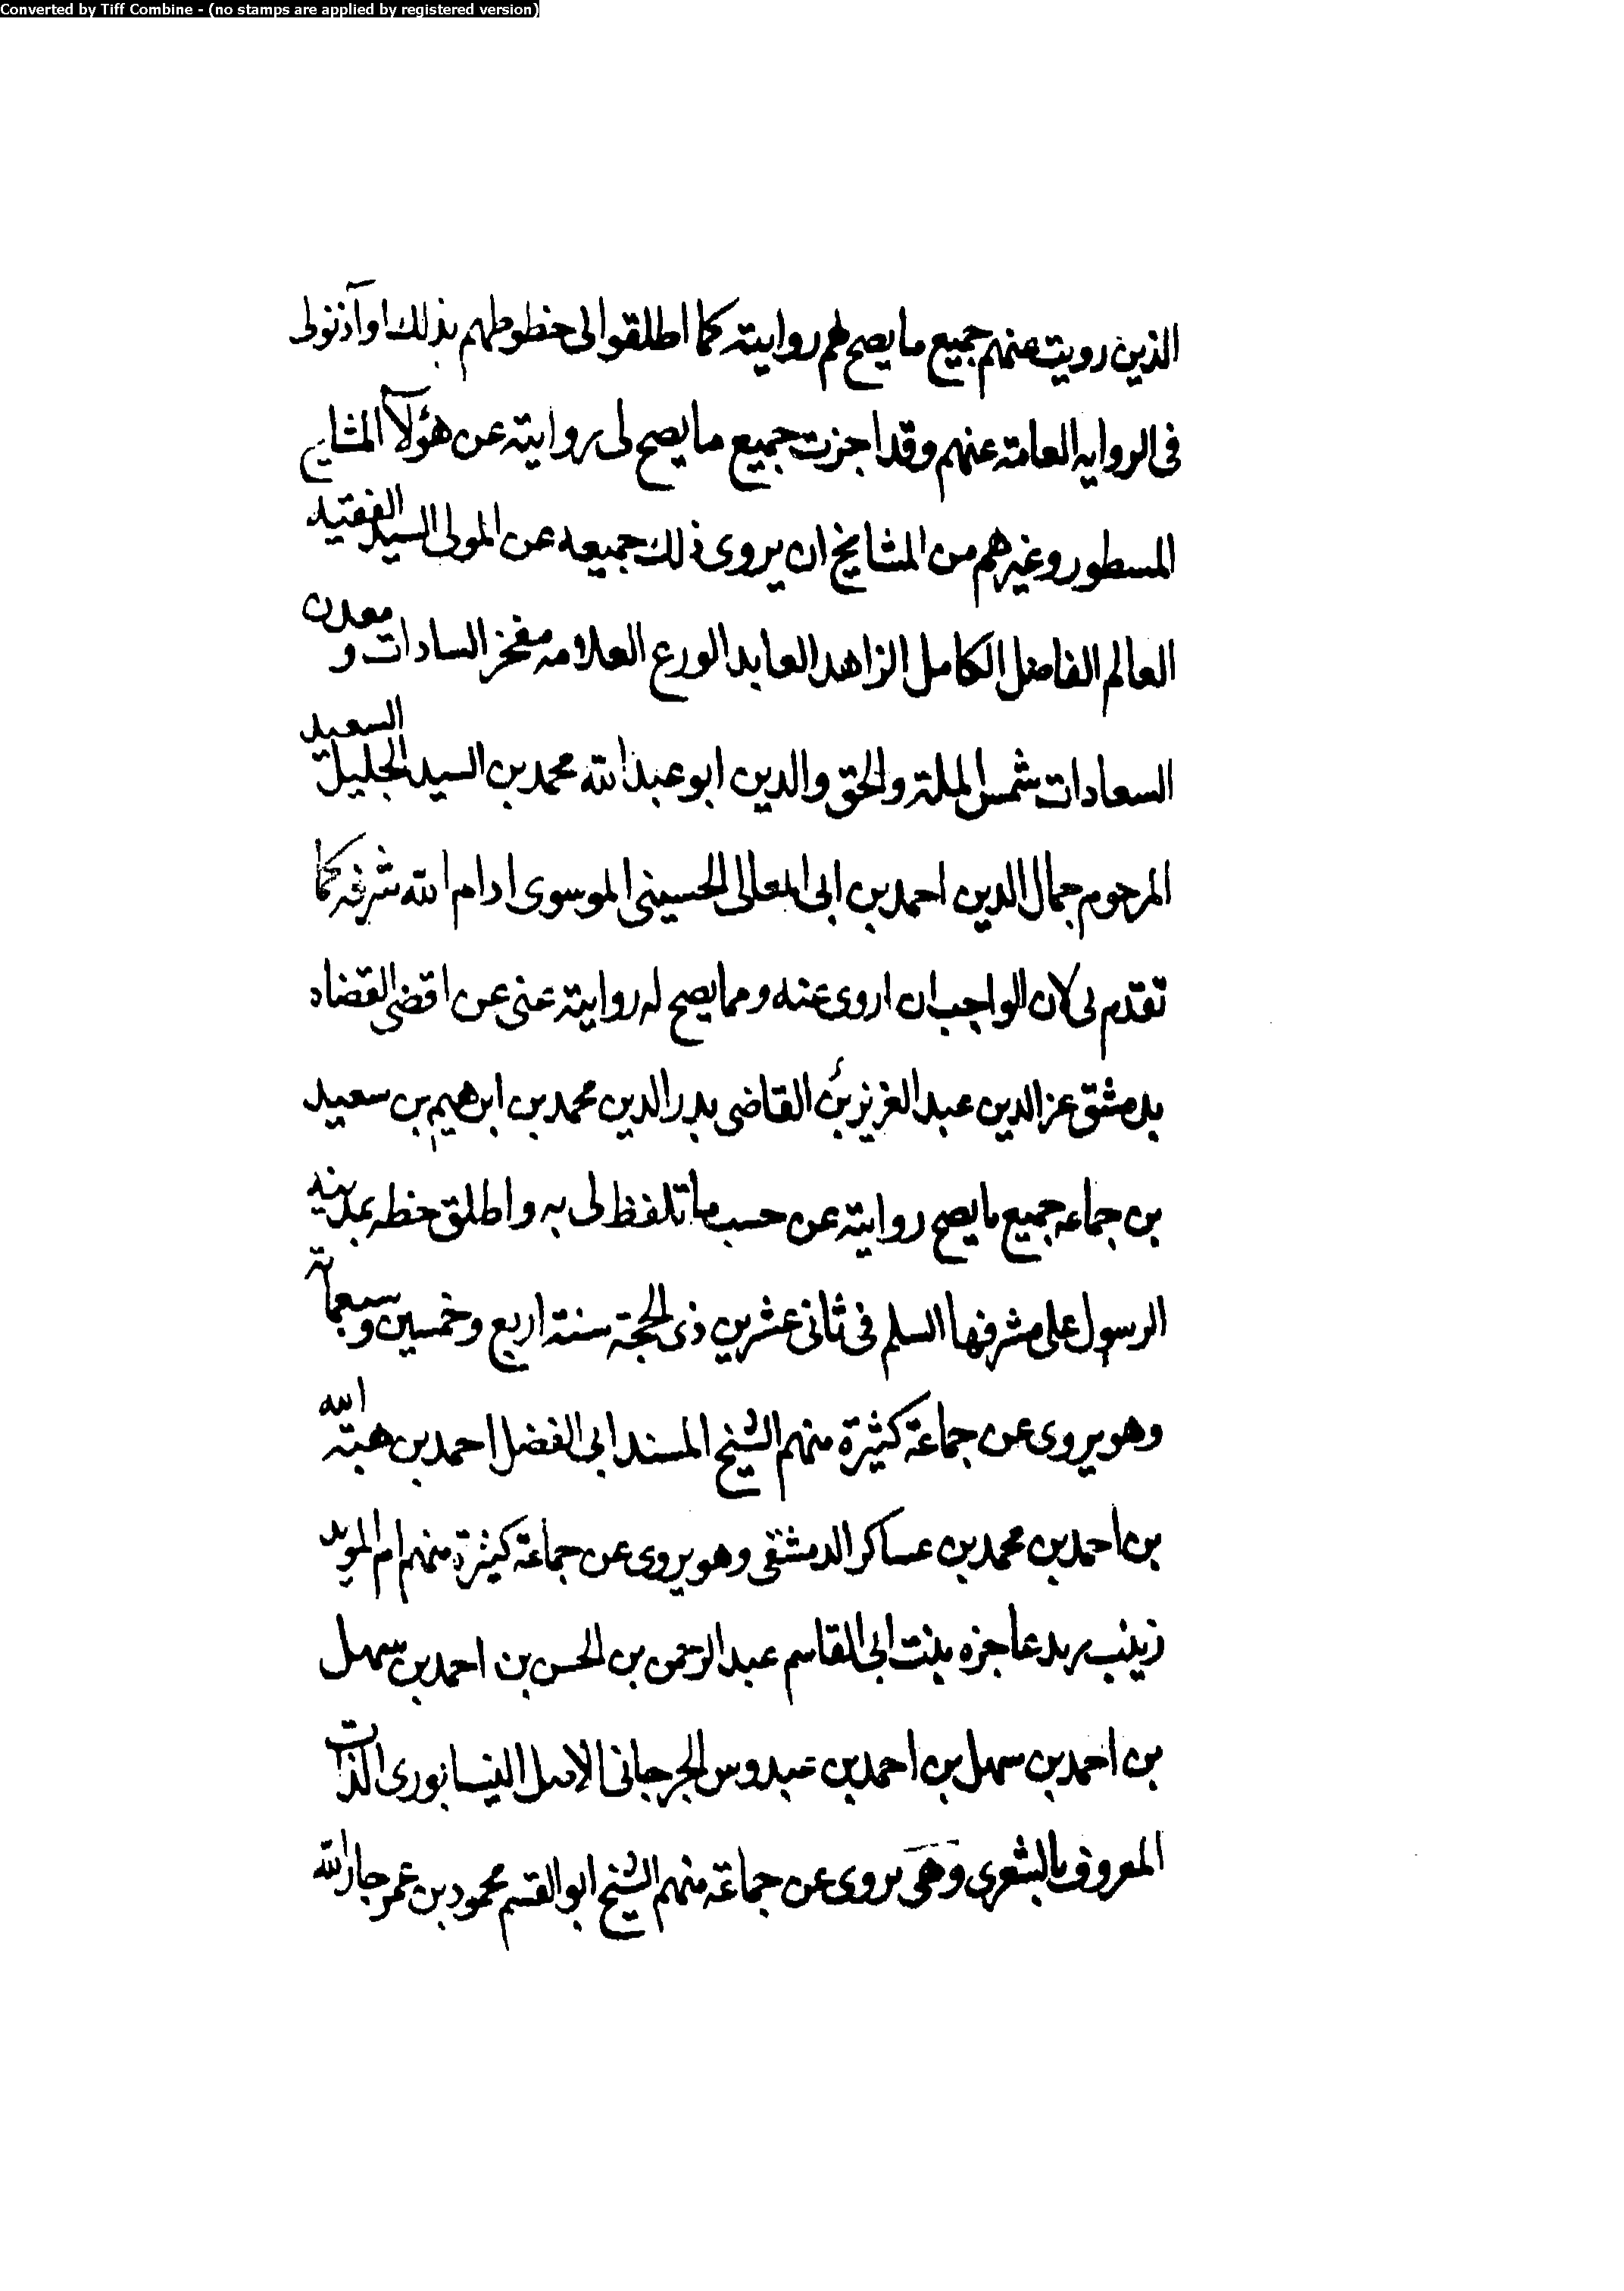 Converted by Tiff Combine - (no stamps are applied by registered version)
الذين رويت عنهم جميع ما يصح لهم روايته كما اطلقوا لى خطوطهم بذلك او آذنولى
فى الروايه العامة عنهم وقد اجزت جميع ما يصح لى روايته عن هؤلآ المشايخ
المسطور وغيرهم من المشايخ ان يروى ذلك جميعه عن المولى السيد الفقيه
العالم الفاضل الكامل الزاهد العابد الورع العلامه مفخر السادات و معدن
السعادات شمس الملة والحق والدين ابو عبد الله محمد بن السيد الجليل السعيد
المرحوم جمال الدين احمد بن ابى المعالى الحسينى الموسوى ادام الله شرفه كما
تقدم لى لان الواجب ان اروى عنه ومما يصح له روايته عنى عن اقضى القضاه
بدمشق عز الدين عبد العزيز بن القاضى بدر الدين محمد بن ابرهيم بن سعيد
بن جماعه جميع ما يصح روايته عن حسب ما تلفظ لى به واطلق خطه بمدينه
الرسول على مشرفها السلم فى ثانى عشرين ذى الحجة سنة اربع وخمسين وسبعمائة
وهو يروى عن جماعة كثيرة منهم الشيخ المسند ابى الفضل احمد بن هبة الله
بن احمد بن محمد بن عساكر الدمشقى وهو يروى عن جماعة كثيرة منهم ام المويد
زينب بنت ابى القاسم عبد الرحمن بن الحسن بن احمد بن سهل
بن احمد بن سهل بن احمد بن عبدوس الجرجانى الاصل النيسابورى الذات
المعروف بالشعرى وهى يروى عن جماعة منهم الشيخ ابو القسم محمود بن عمر جار الله